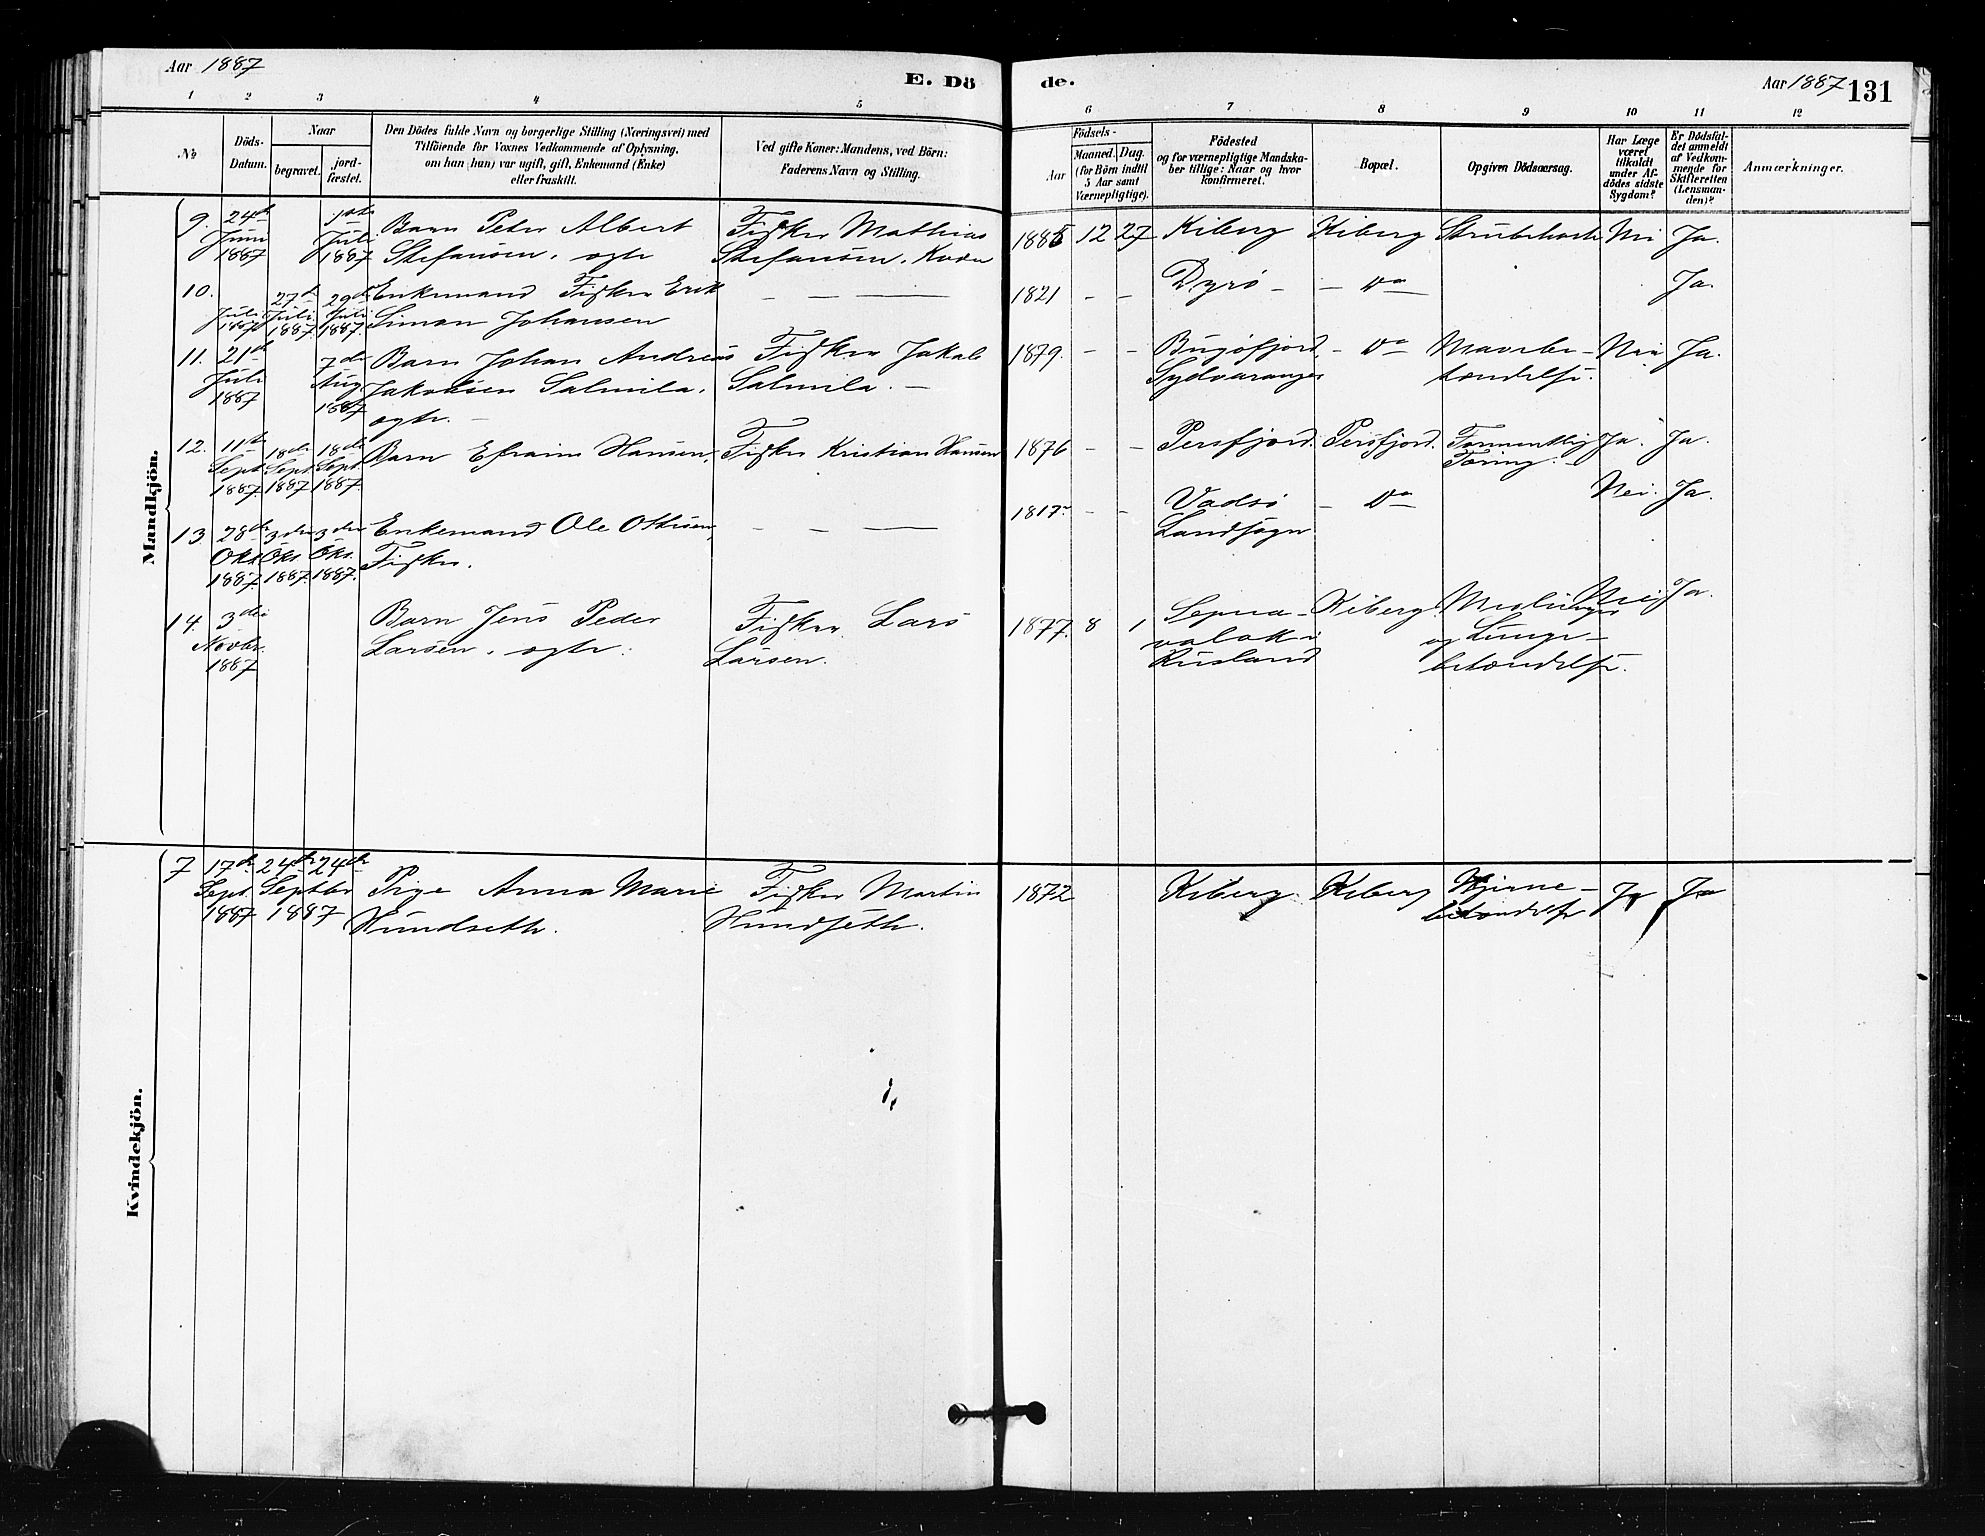 Aar 1887
E. Dö
de.
Aar 1887 131
1 2 3 4 5 6 7 8 9 10 11 12
No
Döds-
Datum.
Naar
begravet.
jord-
fæstet.
Den Dödes fulde Navn og borgerlige Stilling (Næringsvei) med
Tilföiende for Voxnes Vedkommende af Oplysning,
om han (hun) var ugift, gift, Enkemand (Enke)
eller fraskilt.
Ved gifte Koner: Mandens, ved Börn:
Faderens Navn og Stilling.
Födsels-
Aar
Maaned. Dag.
(for Börn indtil
5 Aar samt
Værnepligtige).
Födested
og for værnepligtige Mandska-
ber tillige: Naar og hvor
konfirmeret.
Bopæl.
Opgiven Dödsaarsag.
Har Læge
været
tilkaldt
under Af-
dödes sidste
Sygdom?
Er Dödsfal-
det anmeldt
af Vedkom-
mende for
Skifteretten
(Lensman-
den)?
Anmærkninger.
Mandkjön.
9. 24de Juni 1887
1ste Juli 1887
Barn Peter Albert
Stefansen, ogte
Fisker Mathias
Stefansen, Kvæn
1885 12 27 Kiberg Kiberg Strubehoste Nei Ja.
10. Juli 1887
27de Juli 1887
29de Juli 1887.
Enkemand Fisker Erik
Simon Johansen
— — —
1821 - - Dyrö - - Do Ja.
11. 21de Juli 1887
7de Aug 1887
Barn Johan Andreas
Jakobsen Salmila,
ogte. —
Fisker Jakob
Salmila. —
1879. - - Bugöfjord,
Sydvaranger
- Do
Mavebe-
tændelse.
Nei Ja.
12. 11te Sept 1887.
18de Sept 1887
18de Sept 1887.
Barn Efraim Hansen,
Fisker Kristian Hansen
1876 - - Persfjord. Persfjord. Formentlig
Tæring. -
Ja. Ja.
13 28de Okt 1887.
3die Okt 1887.
3die Okt. 1887.
Enkemand Ole Ottesen,
Fisker.
— — —
1817 - - Vadsö
Landsogn
- Do
Nei. Ja.
14. 3die Novbr. 1887
Barn Jens Peder
Larsen, ogte.
Fisker Lars
Larsen.
1877. 8 1
Rusland
Kiberg
Meslinger
og Lunge-
betændelse.
Nei Ja.
Kvindekjön.
7 17de Sept. 1887
24de 24de
Septbr
1887
Pige Anna Marie
Hundseth.
Fisker Martin
Hundseth.
1872 Kiberg. Kiberg Hjerne-
betændelse
Ja Ja